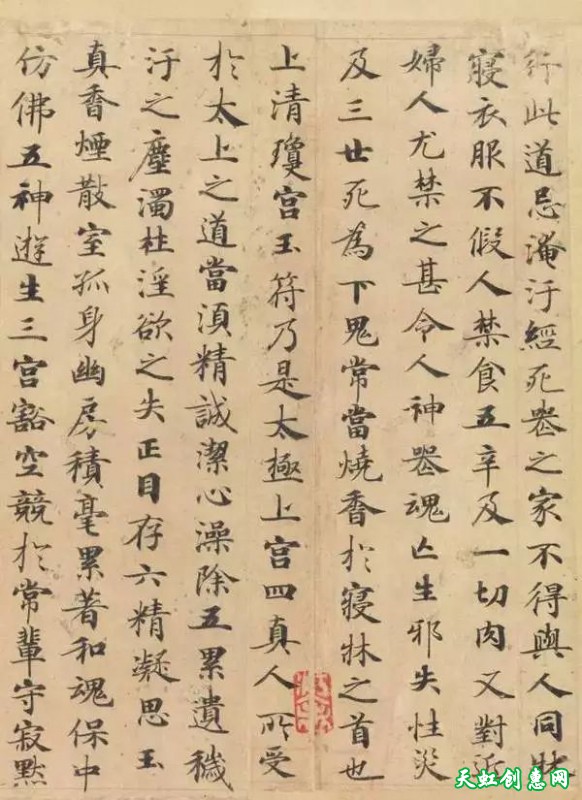 行此道忌淹汙經死喪之家不得與人同牀
寢衣服不假人禁食五辛及一切肉又對近
婦人尤禁之甚令人神喪魂亡生邪失性災
及三世死為下鬼常當燒香於寢牀之首也
上清瓊宮玉符乃是太極上宮四真人所受
於太上之道當須精誠潔心澡除五累遺穢
汙之塵濁杜淫欲之失正目存六精凝思玉
真香煙散室孤身幽房積毫累著和魂保中
仿佛五神遊生三宮豁空競於常輩守寂默
天虹创惠网